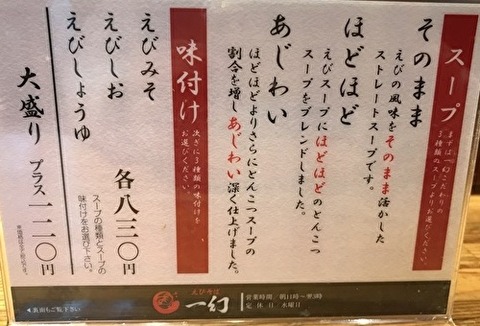 スープ
まずは一幻こだわりの
3種類のスープよりお選びください。
そのまま
えびの風味をそのまま活かした
ストレートスープです。
ほどほど
えびスープにほどほどのとんこつ
スープをブレンドしました。
あじわい
ほどほどよりさらにとんこつスープの
割合を増しあじわい深く仕上げました。
味付け
次ぎに3種類の味付けを
お選びください。
えびみそ
えびしお
えびしょうゆ
各八三〇円
スープの種類とスープの
味付けをお選び下さい。
大盛り プラス 一二〇円
えびそば
一幻
営業時間
定休日 水曜日
◀裏面もご覧下さい